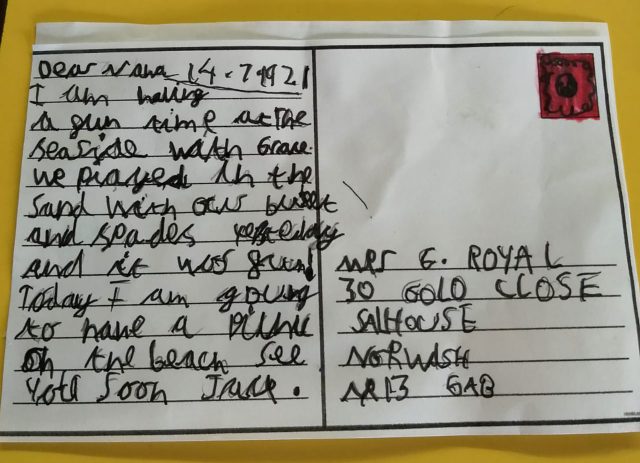 Dear Nana 14.7.1921
I am having
a gun time at the
seaside with Grace.
we played in the
sand with our bucket
and spades yesteday
and it was fun!
Today I am going
to have a picnic
on the beach see
you soon Jack.
MRS G. ROYAL
30 GOLD CLOSE
SALHOUSE
NORWISH
NR13 6AB